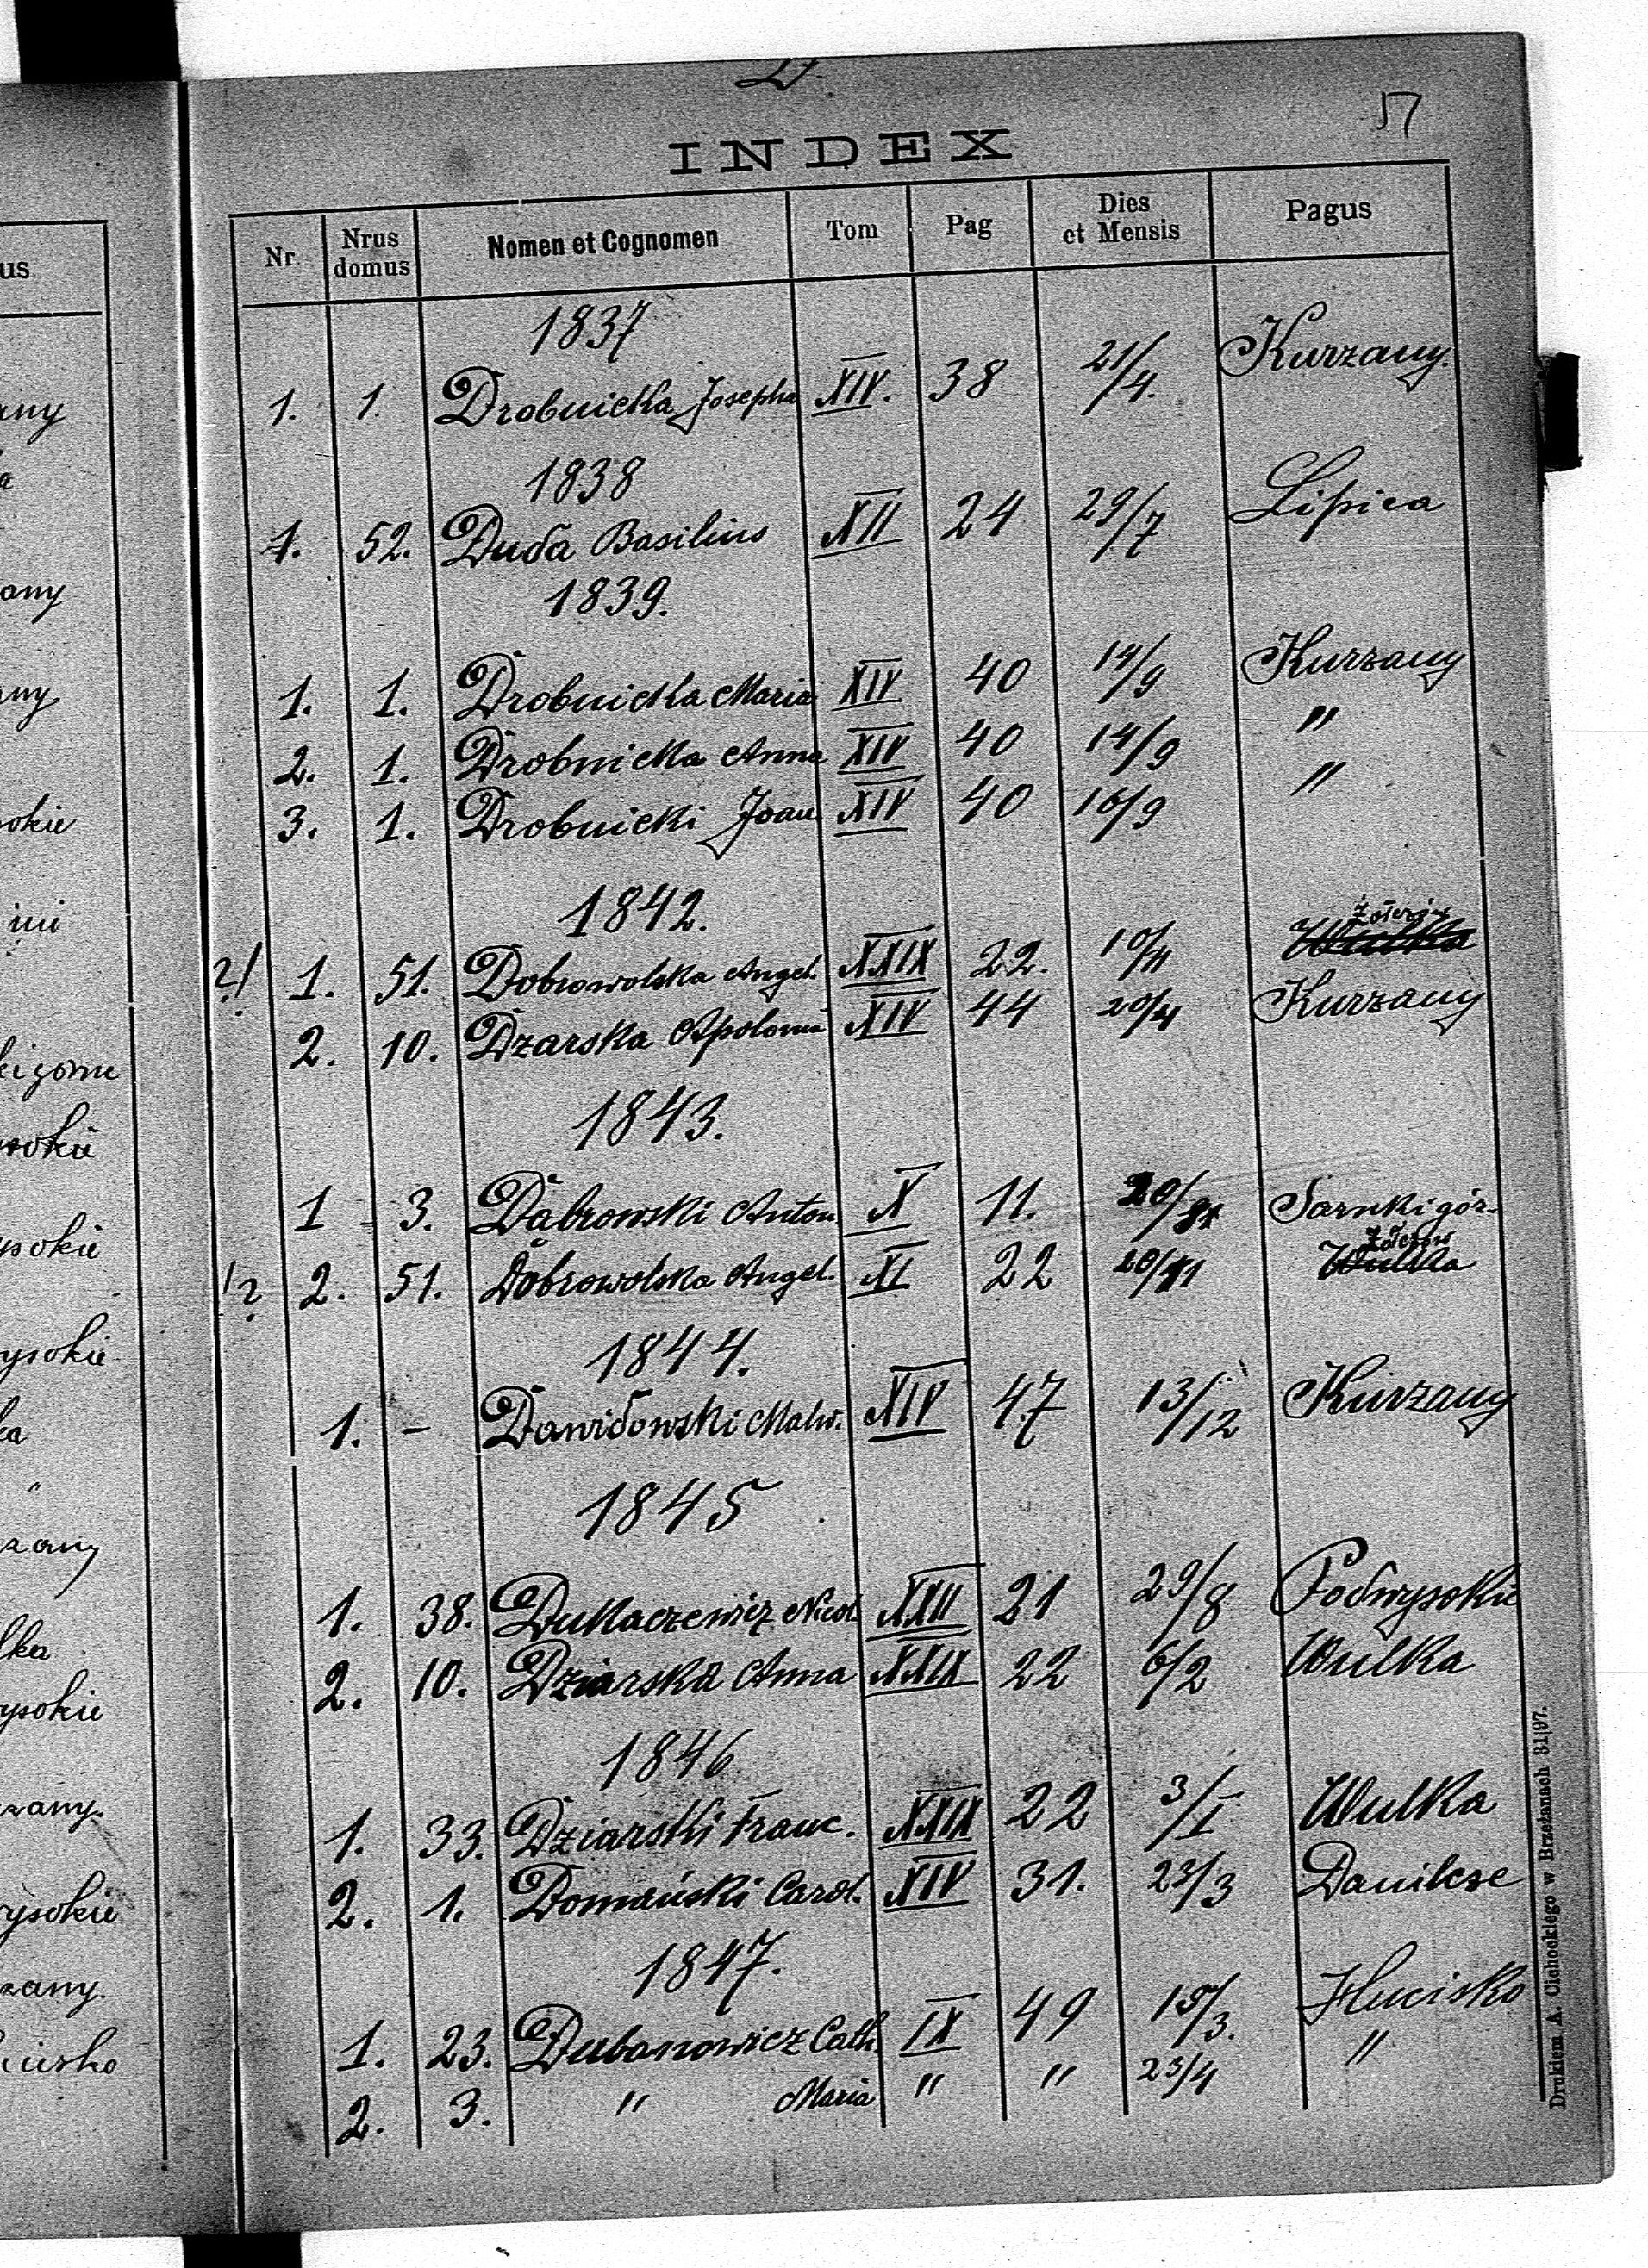 D.
57
INDEX
us
Nr Nrus domus Nomen et Cognomen Tom Pag Dies et Mensis Pagus
1837
1. 1. Drobnicka Josepha XIV. 38 21/4. Kurzany.
1838
1. 52. Duda Basilius XII 24 29/7 Lipica
1839.
1. 1. Drobnicka Maria XIV 40 14/9 Kurzany
2. 1. Drobnicka Anna XIV 40 14/9 "
3. 1. Drobnicki Joan XIV 40 16/9 "
1842.
?! 1. 51. Dobrowolska Angel. XXIX 22. 10/11 Wulka
2. 10. Dzarska Apolonia XIV 44 20/4 Kurzany
1843.
1 3. Dąbrowski Anton. X 11. Sarnki gór.
Żółczów
!? 2. 51. Dobrowolska Angel. XI 22 20/11 Wulka
1844.
1. - Dawidowski Malw. XIV 47 13/12 Kurzany
1845
1. 38. Dukaczewicz Nicol. XXII 21 29/8 Podwysokie
2. 10. Dziarska Anna XXIX 22 6/2 Wulka
1846
1. 33. Dziarski Franc. XXIX 22 3/I Wulka
2. 1. Domański Carol. XIV 31. 23/3 Danilcse
1847.
1. 23. Dubanowicz Cath. IX 49 15/3. Hucisko
2. 3. " Maria " " 23/4 "
Drukiem A. Cichockiego w Brzeżanach 31|97.